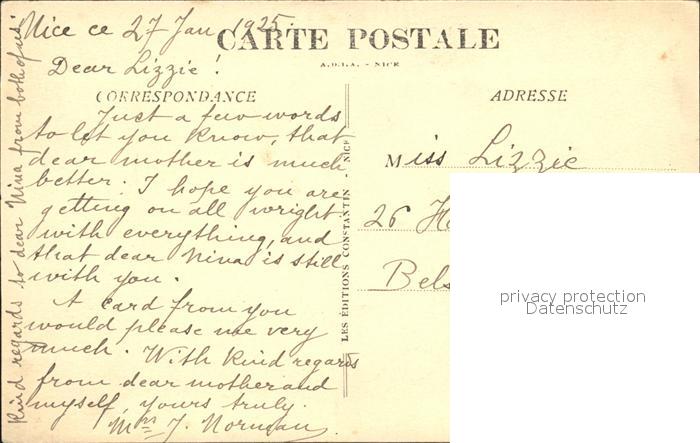 Nice ce 27 Jan 1925.
CARTE POSTALE
A.D.I.A. - NICE
Dear Lizzie!
CORRESPONDANCE
Just a few words
to let you know, that
dear mother is much
better. I hope you are
getting on all wright
with everything, and
that dear Nina is still
with you.
A card from you
would please me very
much. With kind regards
from dear mother and
myself, yours truly.
Mrs J. Norman.
Kind regards to dear Nina from both of us.
LES ÉDITIONS CONSTANTIN - NICE
ADRESSE
Miss Lizzie
26
Bels
privacy protection
Datenschutz